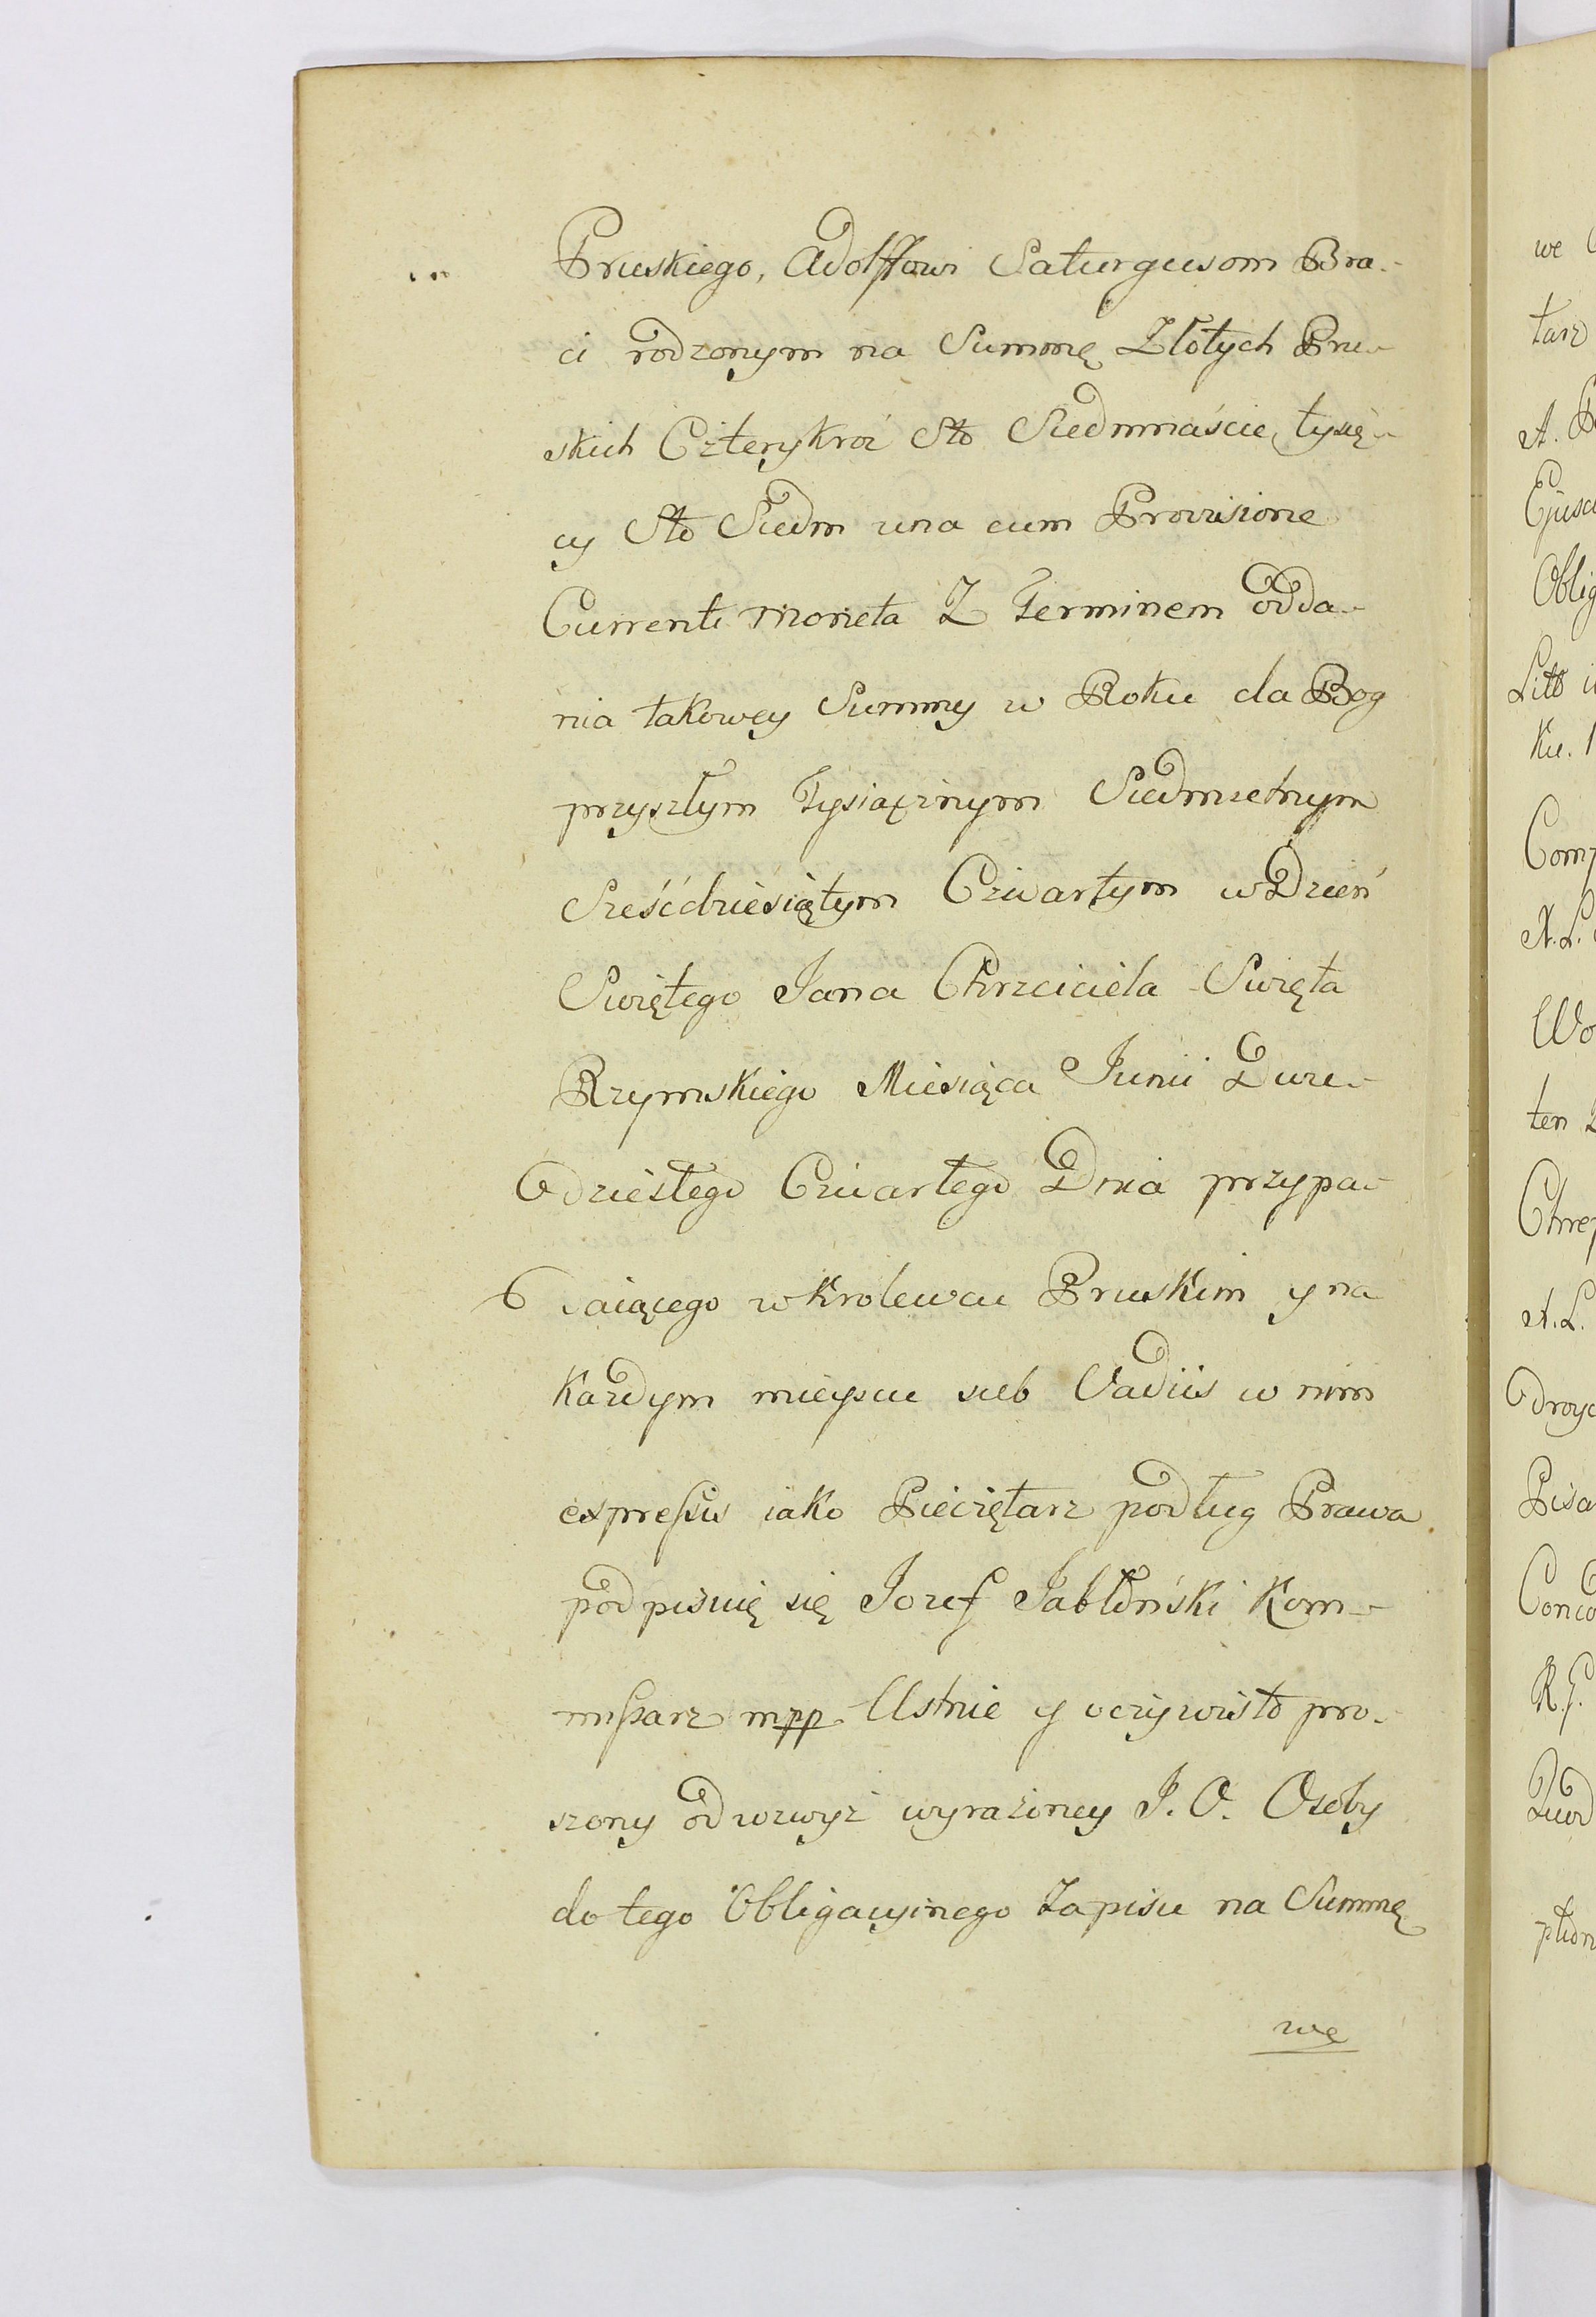 Pruskiego, Adolffowi Saturgusom Bra-
ci rodzonym na Summę Złotych Pru-
skich Czterykroć Sto Siedmnaście tysię-
cy Sto Siedm una cum Provisione
Currenti Moneta Z Terminem odda-
nia takowey Summy w Roku da Bog
przyszłym Tysiącznym Siedmsetnym
Sześćdziesiątym Czwartym w Dzień
Swiętego Jana Chrzciciela Swięta
Rzymskiego Miesiąca Junii Dwu-
dziestego Czwartego Dnia przypa-
daiącego w Krolewcu Pruskim y na
Każdym mieyscu sub Vadiis w nim
expressis iako Pieczętarz podług Prawa
podpisuię się Jozef Jabłoński Kom-
missarz mpp Ustnie y oczywisto pro-
szony od wzwyż wyrażoney J. O. Osoby
do tego Obligacyinego Zapisu na Summę
we
tarz
A.
Litt
Ku. 1
N. L.
ten
A. L.